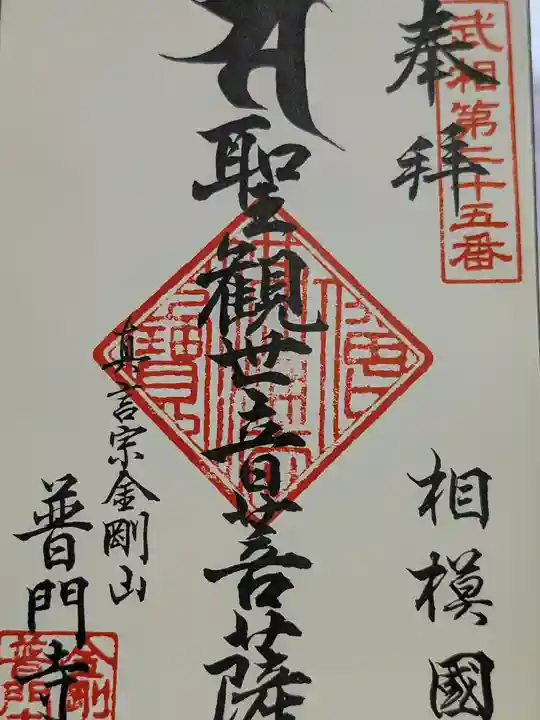 武相第三十五番
奉拝
相模國
聖観世音菩薩
真言宗金剛山
普門寺
金剛
普門